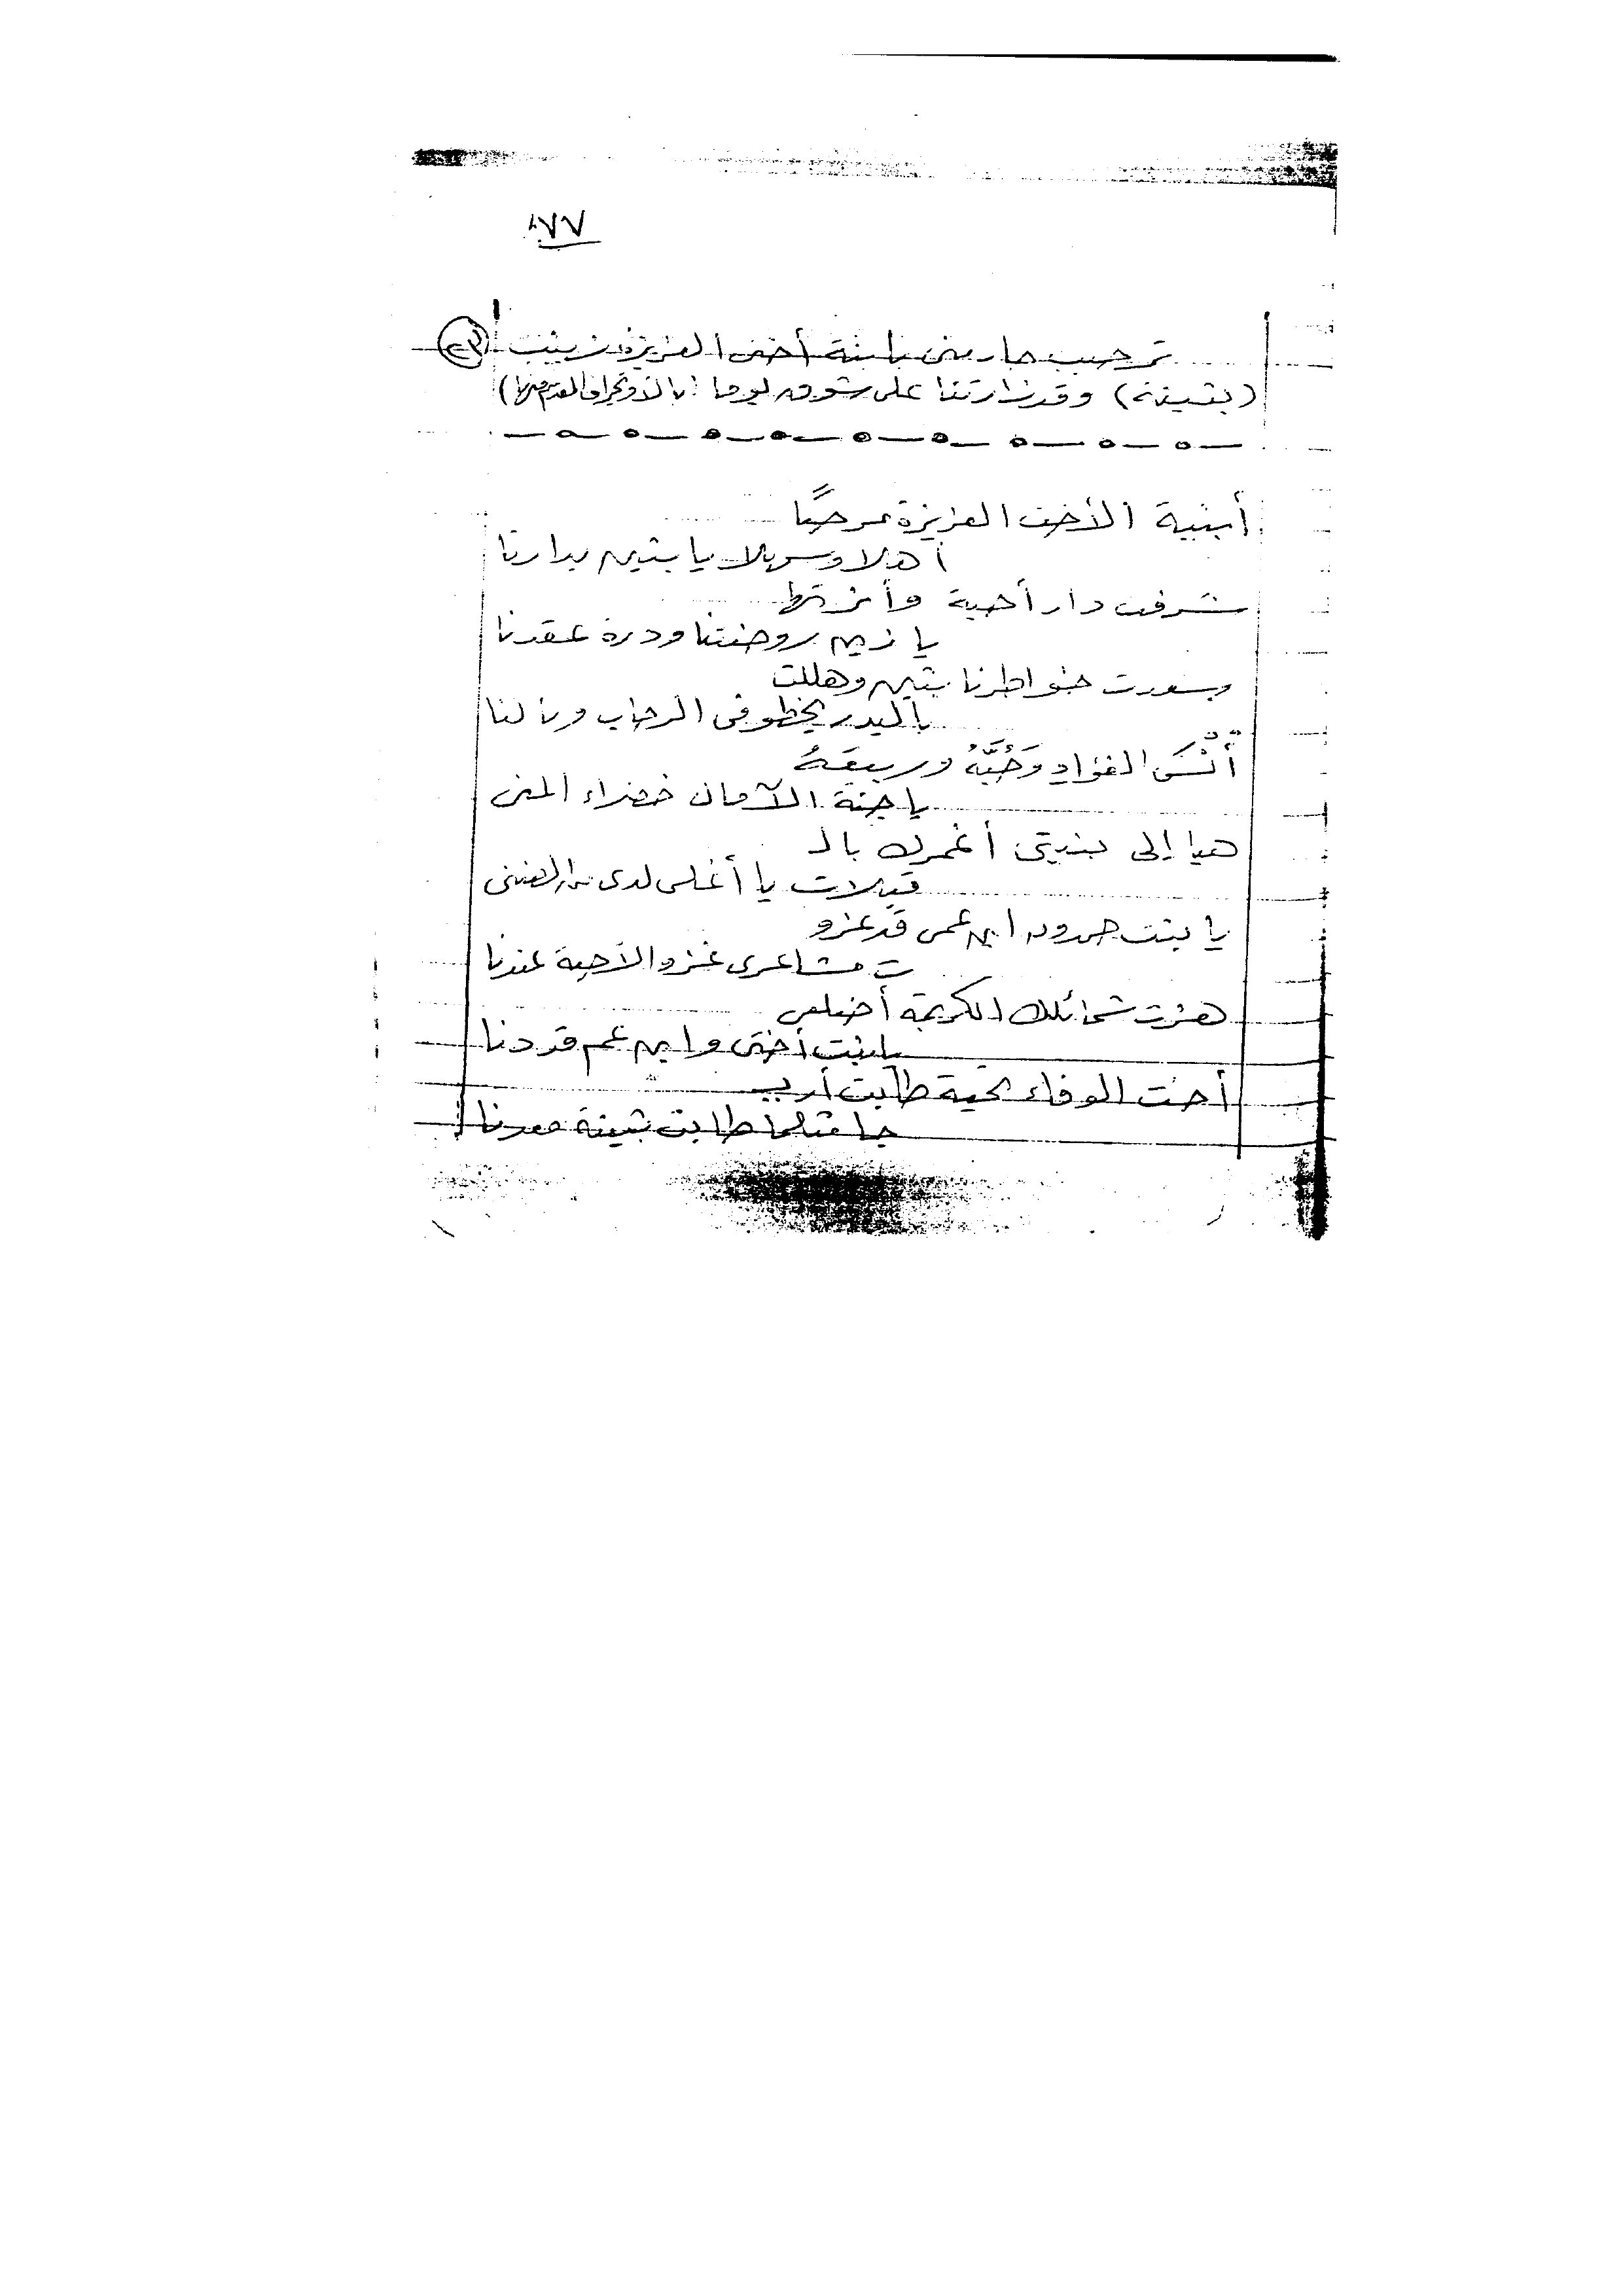 ٨٧٧
ترحيب حار منى بابنة أختى العزيزة زينب
(بثينة) وقد زارتنا على شوق لها
أبنية الأخت العزيزة مرحبًا
أهلا وسهلا يا بثين بدارنا
شرفت دار أحبة وأنرتها
يا زين روضتنا ودرة عقدنا
وسعدت خواطرنا بثين وهللت
بالبدر يخطو فى الرحاب ورنا لنا
أُنْسَ الفؤادِ وَحُبَّهُ وربيعَهُ
يا جنة الآمال خضراء المنى
هيا إلى بنيتى أغمرك بالـ
قبلات يا أغلى لدى من الضنى
يا بنت حمدون ابن عمى قد غزو
ت مشاعرى غزو الأحبة عندنا
هزت شمائلك الكريمة أضلعى
يا بنت أختى وابن عم قد دنا
أخت الوفاء تحية طابت أريـ
جا مثلما طابت بثينة معدنا